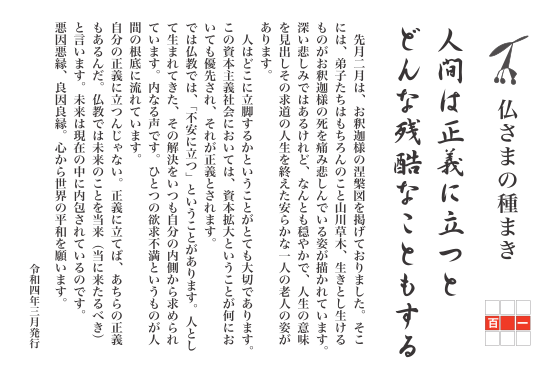 仏さまの種まき
百一
人間は正義に立つと
どんな残酷なこともする
先月二月は、お釈迦様の涅槃図を掲げておりました。そこ
には、弟子たちはもちろんのこと山川草木、生きとし生ける
ものがお釈迦様の死を痛み悲しんでいる姿が描かれています。
深い悲しみではあるけれど、なんとも穏やかで、人生の意味
を見出しその求道の人生を終えた安らかな一人の老人の姿が
あります。
人はどこに立脚するかということがとても大切であります。
この資本主義社会においては、資本拡大ということが何にお
いても優先され、それが正義とされます。
では仏教では、「不安に立つ」ということがあります。人とし
て生まれてきた、その解決をいつも自分の内側から求められ
ています。内なる声です。ひとつの欲求不満というものが人
間の根底に流れています。
自分の正義に立つんじゃない。正義に立てば、あちらの正義
もあるんだ。仏教では未来のことを当来（当に来たるべき）
と言います。未来は現在の中に内包されているのです。
悪因悪縁、良因良縁。心から世界の平和を願います。
令和四年三月発行